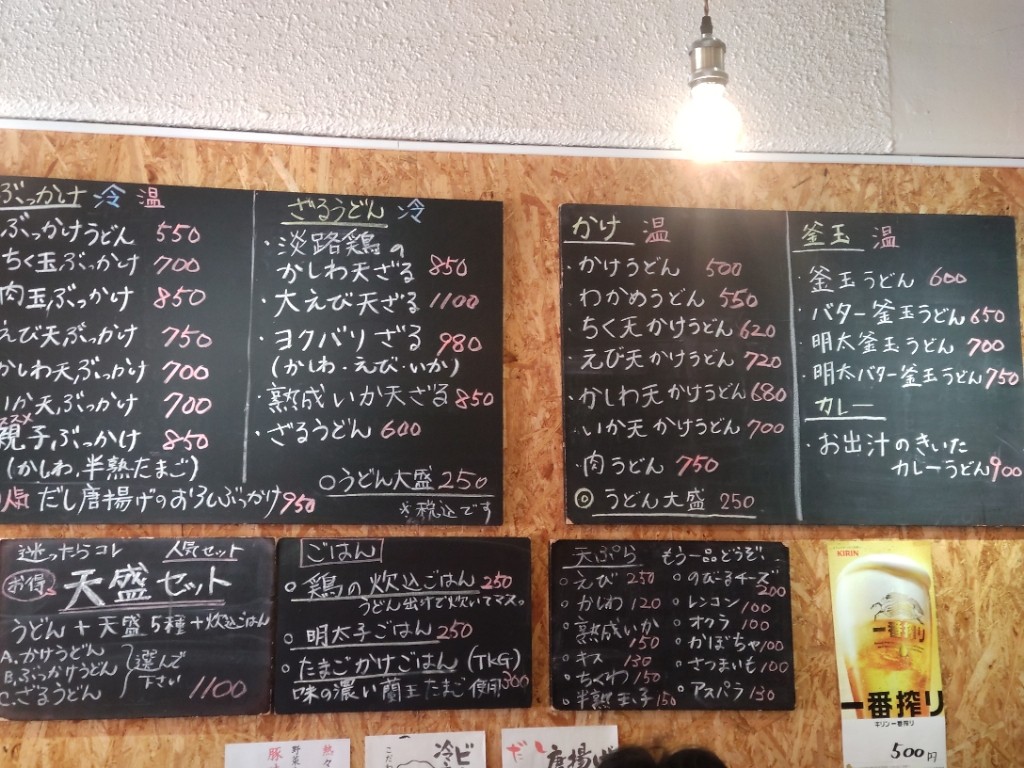 ぶっかけ 冷 温
ぶっかけうどん 550
ちく玉ぶっかけ 700
肉玉ぶっかけ 850
えび天ぶっかけ 750
かしわ天ぶっかけ 700
いか天ぶっかけ 700
親子ぶっかけ 850
(かしわ、半熟たまご)
人気 だし唐揚げのおろしぶっかけ 950
ざるうどん 冷
・淡路鶏の
かしわ天ざる 850
・大えび天ざる 1100
・ヨクバリざる 980
(かしわ・えび・いか)
・熟成いか天ざる 850
・ざるうどん 600
○うどん大盛 250
※税込です
かけ 温
・かけうどん 500
・わかめうどん 550
・ちく天かけうどん 620
・えび天かけうどん 720
・かしわ天かけうどん 680
・いか天かけうどん 700
・肉うどん 750
◎うどん大盛 250
釜玉 温
・釜玉うどん 600
・バター釜玉うどん 650
・明太釜玉うどん 700
・明太バター釜玉うどん 750
カレー
・お出汁のきいた
カレーうどん 900
迷ったらコレ 人気セット
お得 天盛セット
うどん+天盛5種+炊込ごはん
A.かけうどん
B.ぶっかけうどん
C.ざるうどん
選んで
下さい
1100
ごはん
○鶏の炊込ごはん 250
うどん出汁で炊いてマス。
○明太子ごはん 250
○たまごかけごはん(TKG)
味の濃い蘭王たまご使用 300
天ぷら もう一品どうぞ、
○えび 250
○かしわ 120
○熟成いか
150
○キス 130
○ちくわ 150
○半熟玉子 150
○のびるチーズ
200
○レンコン 100
○オクラ 100
○かぼちゃ 100
○さつまいも 100
○アスパラ 130
KIRIN
一番搾り
一番搾り
キリン一番搾り
500円
熱々
野菜
豚
こだわ
冷ビ
だし唐揚げ